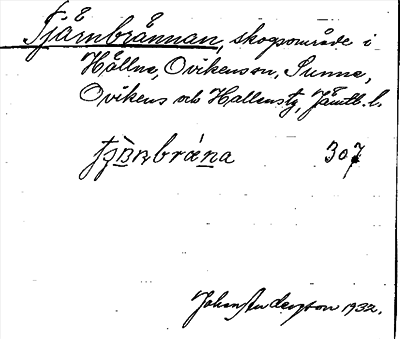 Tjärnbrännan, skogsområde i
Hållne, Ovikenson, Sunne,
Ovikens och Hallens tg, Jämtl. l.
307
Johan Anderzson 1932.